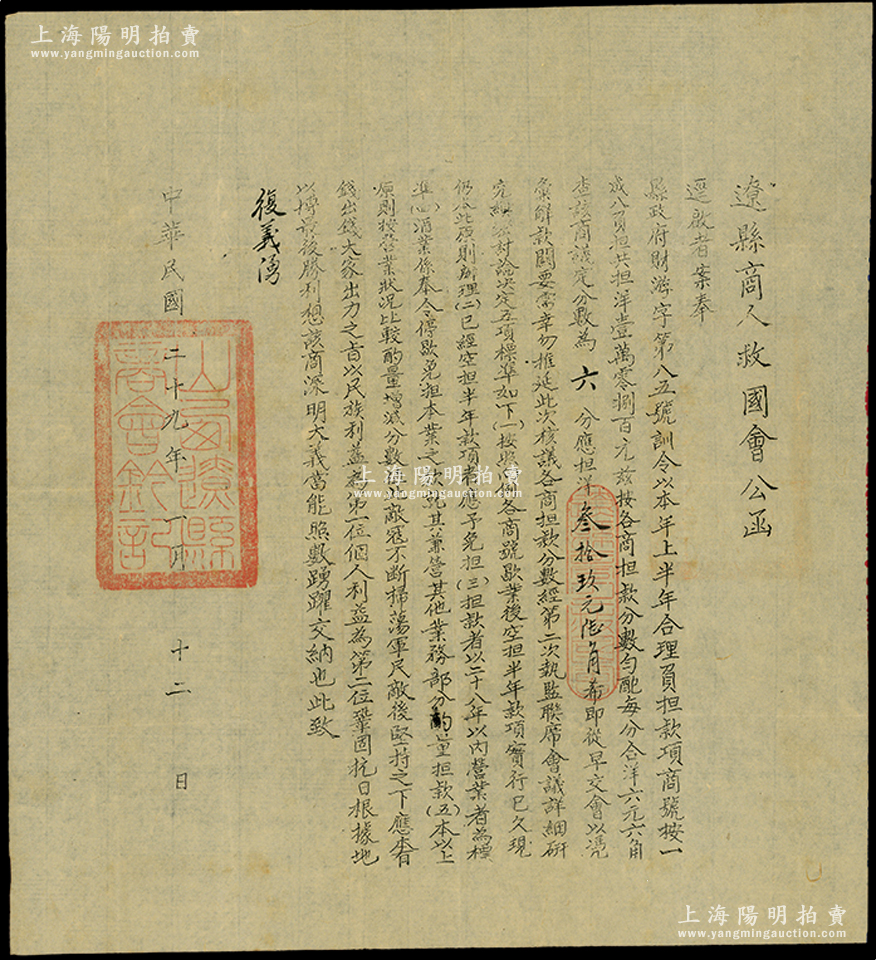 上海陽明拍賣
www.yangmingauction.com
遼縣商人救國會公函
逕啟者案奉
縣政府財游字第八五號訓令以本年上半年合理負担款項商號按一
成八負担共担洋壹萬零捌百元茲按各商担款分數勻配每分合洋六元六角
查該商議定分數為 六 分應担洋叁拾玖元陸角希即從早交會以憑
彙解款關要需幸勿推延此次核議各商担款分數經第二次執監聯席會議詳細研
究縝密討論決定五項標準如下(一)按照向例各商號歇業後空担半年款項實行已久現
仍本此原則辦理(二)已經空担半年款項者應予免担(三)担款者以二十八年以內營業者為標
準(四)酒業係奉令停歇免担本業之款就其兼營其他業務部分酌量担款(五)本以上
原則按營業狀況比較酌量增減分數 敵寇不斷掃蕩軍民敵後堅持之下應本有
錢出錢大家出力之旨以民族利益為第一位個人利益為第二位鞏固抗日根據地
以博最後勝利想該商深明大義當能照數踴躍交納也此致
復義湧
中華民國二十九年 月十二日
山西遼縣
商會鈐記
上海陽明拍賣
www.yangmingauction.com
上海陽明拍賣
www.yangmingauction.com